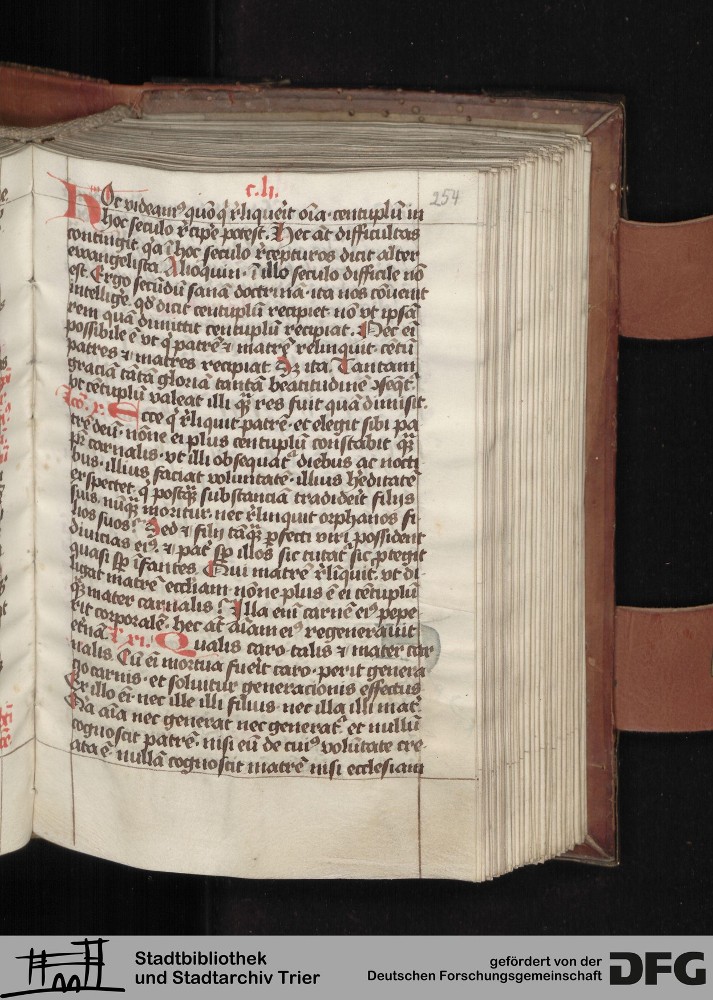 c. li.
254
Hoc videam9 quō q̇ r̄liquerit oīa · centuplū in
hoc seculo r̄cipe potest. Hec at̄ difficultas
contingit. qa ī hoc seculo r̄cepturos dicit alter
ewangelista. Alioquin · ī illo seculo difficile nō
est. Ergo secūdū sanā doctrinā · ita nos cōuenit
intellige. qd̄ dicit centuplū recipiet · nō vt ipsā
rem quā dimittit centuplū recipiat. Hec ei
possibile ē vt q̇ patrē ⁊ matrē relinquit · cētū
patres ⁊ matres recipiat. Sz ita. Tantam
graciā tātā gloriā tantā beatitudinē ↄseqt̄
vt cētuplū valeat illi qͣ̄ res fuit quā dimisit.
Ecce q̇ r̄liquit patrē · et elegit sibi pa
trē deū · nōne ei plus centuplū constabit qͣ̄
pr̄ carnalis · vt illi obsequat᷑ diebus ac nocti
bus · illius faciat voluntatē · illius h̄editatē
exspectet. q̇ postqͣ̄ substanciā tradiderit filijs
suis. nūqͣ̄ moritur. nec r̄linquit orphanos fi
lios suos. Sed ⁊ filij tāqͣ̄ ꝑfecti viri possident
diuicias ei9. ⁊ pat᷑ sꝑ illos sic tutat᷑ sic ꝓtegit
quasi sꝑ īfantes. Qui matrē r̄liquit. vt di
ligat matrē eccliam · nōne plus ē ei cētuplū
qͣ̄ mater carnalis. Illa eni carnē ei9 pepe
rit corporalē · hec at̄ aīam ei9 regenerauit
etnā. Qualis caro · talis ⁊ mater car
nalis. Cū ei mortua fuerit caro · perit genera
tio carnis · et soluitur generacionis effectus
Ex illo ēr nec ille illi filius · nec illa illi mat᷑.
Na aīa nec generat nec generat᷑. et nullū
cognoscit patrē · nisi eū de cui9 volūtate cre
ata ē · nullā cognoscit matrē nisi ecclesiam
Stadtbibliothek
und Stadtarchiv Trier
gefördert von der
Deutschen Forschungsgemeinschaft
DFG